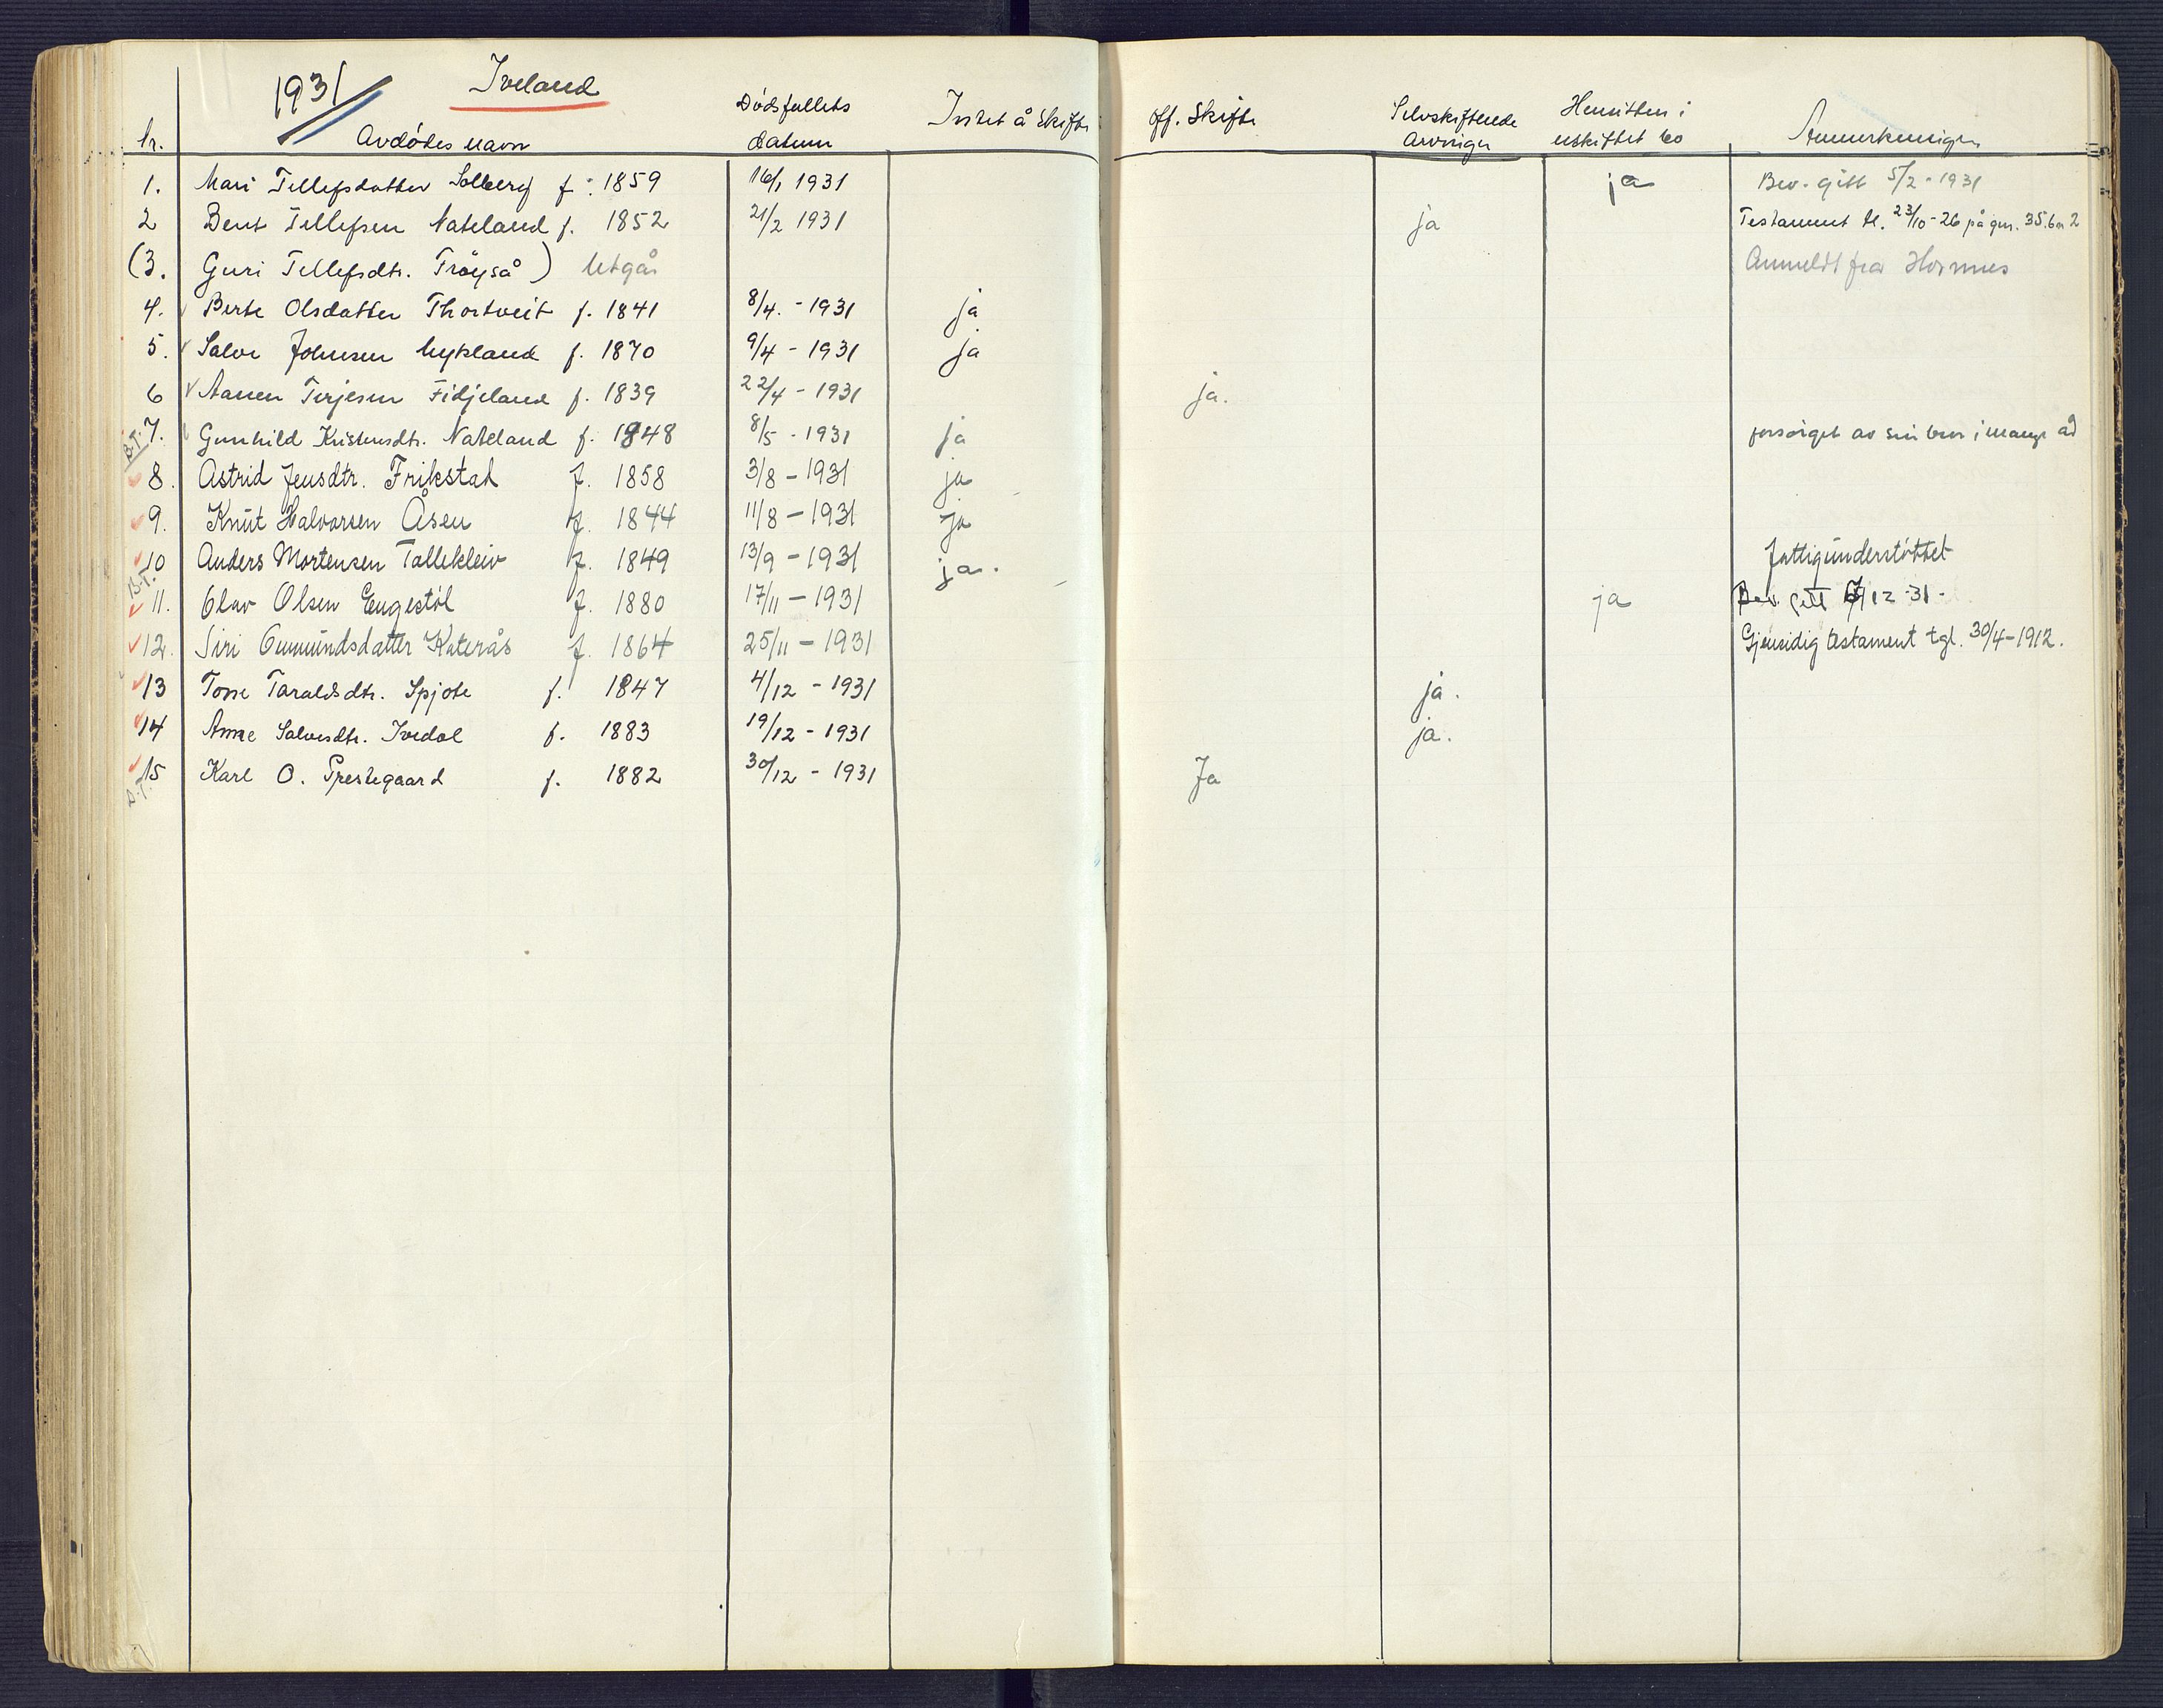 1931 Iveland
Nr. Avdødes navn Dødsfallets datum Intet å skifte Off. Skifte Selvskiftende Arvinger Hensitten i uskiftet bo Anmerkninger
1. Mari Tellefsdatter Solberg f. 1859 16/1 1931 ja Bev. gitt 5/2 - 1931
2 Bent Tellefsen Nateland f. 1852 21/2 1931 ja Testament tl. 23/10-26 på gnr. 35. bn 2
(3. Guri Tellefsdtr. Frøyså) Utgår Anmeldt fra Hornnes
4. Berte Olsdatter Thortveit f. 1841 8/4. - 1931 ja
5. Salve Johnsen Mykland f. 1870 9/4 - 1931 ja
6 Aanen Terjesen Fidjeland f. 1839 22/4 - 1931 ja.
B.T. 7. Gunhild Kristensdtr. Nateland f. 1848 8/5 - 1931 ja forsørget av sin bror i mange år
8. Astrid Jensdtr. Frikstad f. 1858 3/8 - 1931 ja
9. Knut Halvorsen Åsen f. 1844 11/8 - 1931 ja
10 Anders Mortensen Tallekleiv f. 1849 13/9 - 1931 ja. Fattigunderstöttet
B.T. 11. Olav Olsen Engestöl f. 1880 17/11 - 1931 ja Bev. gitt /12 - 31 -
12. Siri Gunnundsdatter Katerås f. 1864 25/11 - 1931 Gjensidig testament tgl. 30/4-1912.
13 Tone Taraldsdtr. Spjote f. 1847 4/12 - 1931 ja.
14 Anne Salvesdtr. Ivedal f. 1883 19/12 - 1931 ja.
15 Karl O. Prestegaard f. 1882 30/12 - 1931 Ja
B.T.